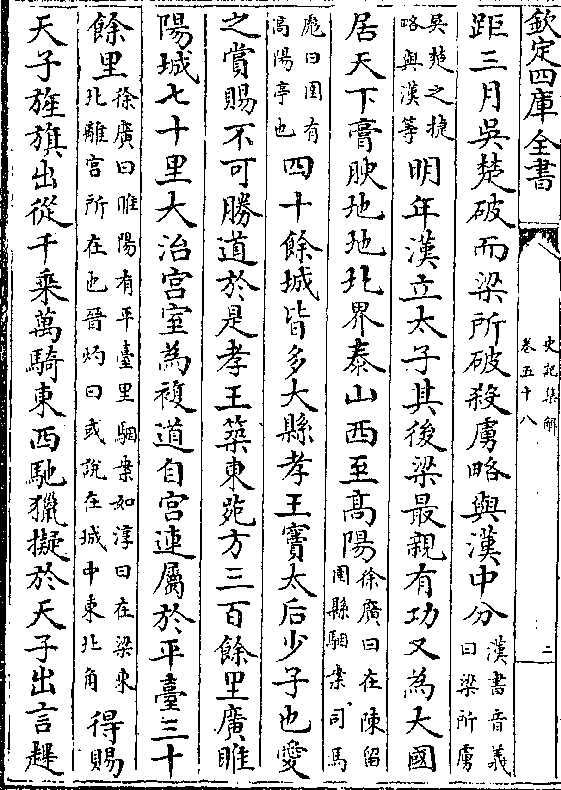 欽定四庫全書
史記集解
卷五十八
二
距三月吳楚破而梁所破殺虜略與漢中分漢書音義曰梁所虜
吳楚之捷略與漢等明年漢立太子其後梁最親有功又為大國
居天下膏腴地地北界泰山西至髙陽徐廣曰在陳留圉縣駰案司馬
彪曰圉有髙陽亭也四十餘城皆多大縣孝王竇太后少子也愛
之賞賜不可勝道於是孝王築東苑方三百餘里廣睢
陽城七十里大治宫室為複道自宫連屬於平臺三十
餘里徐廣曰睢陽有平臺里駰案如淳曰在梁東北離宫所在也晉灼曰或說在城中東北角得賜
天子旌旗出從千乘萬騎東西馳獵擬於天子出言趩